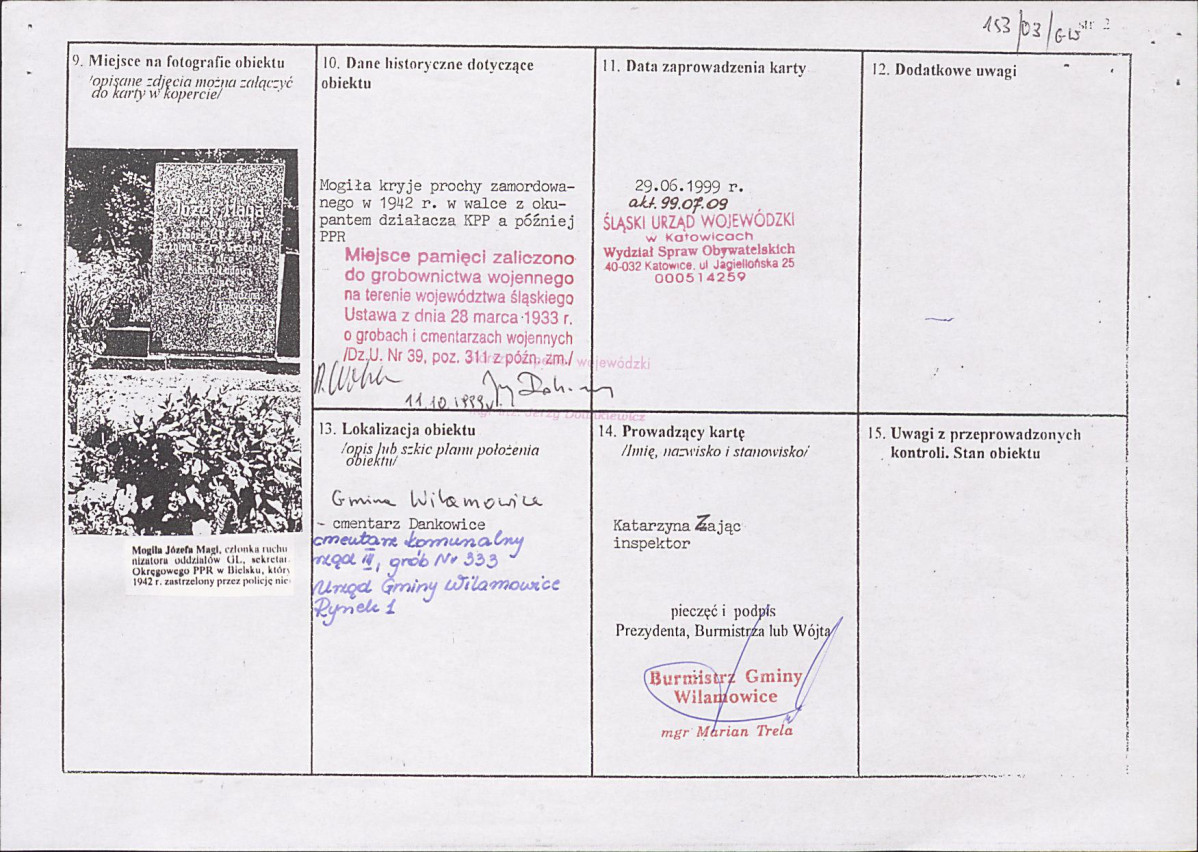 153/03/G-W str 2
9. Miejsce na fotografie obiektu
/opisane zdjęcia można załączyć
do karty w kopercie/
Józef Maga
Mogiła Józefa Magi, członka ruchu
nizatora oddziałów GL, sekretar
Okręgowego PPR w Bielsku, któr
1942 r. zastrzelony przez policję nie
10. Dane historyczne dotyczące
obiektu
Mogiła kryje prochy zamordowa-
nego w 1942 r. w walce z oku-
pantem działacza KPP a później
PPR
Miejsce pamięci zaliczono
do grobownictwa wojennego
na terenie województwa śląskiego
Ustawa z dnia 28 marca 1933 r.
o grobach i cmentarzach wojennych
/Dz.U. Nr 39, poz. 311 z późn. zm./
wojewódzki
11.10.1999
11. Data zaprowadzenia karty
29.06.1999 r.
akt. 99.07.09
ŚLĄSKI URZĄD WOJEWÓDZKI
w Katowicach
Wydział Spraw Obywatelskich
40-032 Katowice, ul Jagiellońska 25
000514259
12. Dodatkowe uwagi
13. Lokalizacja obiektu
/opis lub szkic planu położenia
obiektu/
Gmina Wilamowice
- cmentarz Dankowice
cmentarz komunalny
rząd III, grób Nr 333
Urząd Gminy Wilamowice
Rynek 1
14. Prowadzący kartę
/Imię, nazwisko i stanowisko/
Katarzyna Zając
inspektor
pieczęć i podpis
Prezydenta, Burmistrza lub Wójta
Burmistrz Gminy
Wilamowice
mgr Marian Trela
15. Uwagi z przeprowadzonych
kontroli. Stan obiektu